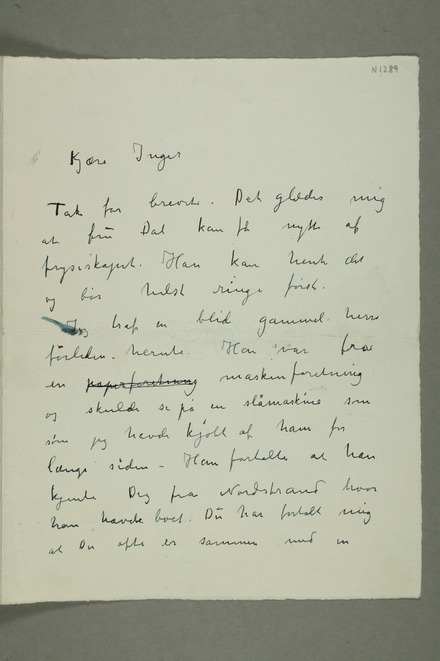 N1289
Kjære Inger
Tak for brevet. Det glæder mig
at fru Dal kan få nytte af
fryseskapet. Han kan hente det
og bør helst ringe først.
Jeg traf en blid gammel herre
forleden. herute. Han var fra
en papirforretning maskinforretning
og skulde se på en slåmaskine som
som jeg havde kjøbt af ham for
længe siden – Han fortalte at han
kjente Dig fra Nordstrand hvor
han havde boet. Du har fortalt mig
at Du ofte er sammen med en